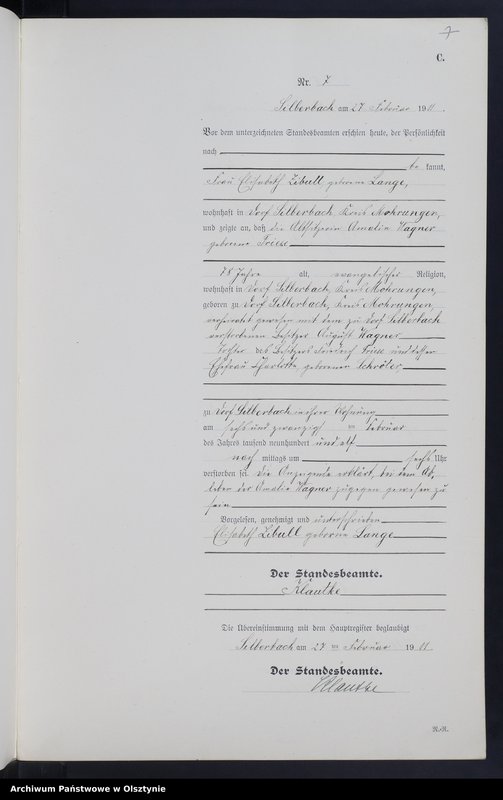 7
C.
Nr. 7
Silberbach am 27 Februar 1911.
Vor dem unterzeichneten Standesbeamten erschien heute, der Persönlichkeit
nach
be kannt,
Frau Elisabeth Zibull geborene Lange,
wohnhaft in Dorf Silberbach, Kreis Mohrungen,
und zeigte an, daß die Altsitzerin Amalie Wagner
geborene Friese
78 Jahre alt, evangelischer Religion,
wohnhaft in Dorf Silberbach, Kreis Mohrungen,
geboren zu Dorf Silberbach, Kreis Mohrungen
verheiratet gewesen mit dem zu Dorf Silberbach
verstorbenen Besitzer August Wagner
Tochter des Besitzers Friedrich Friese und dessen
Ehefrau Charlotte geborenen Schröter
zu Dorf Silberbach in ihrer Wohnung
am sechs und zwanzigsten Februar
des Jahres tausend neunhundert und elf
nach mittags um sechs Uhr
verstorben sei. Die Anzeigende erklärt, bei dem Ab-
leben der Amalie Wagner zugegen gewesen zu
sein
Vorgelesen, genehmigt und unterschrieben
Elisabeth Zibull geborene Lange
Der Standesbeamte.
Klautke
Die Übereinstimmung mit dem Hauptregister beglaubigt
Silberbach am 27 ten Februar 1911
Der Standesbeamte.
Klautke
R.-R.
Archiwum Państwowe w Olsztynie